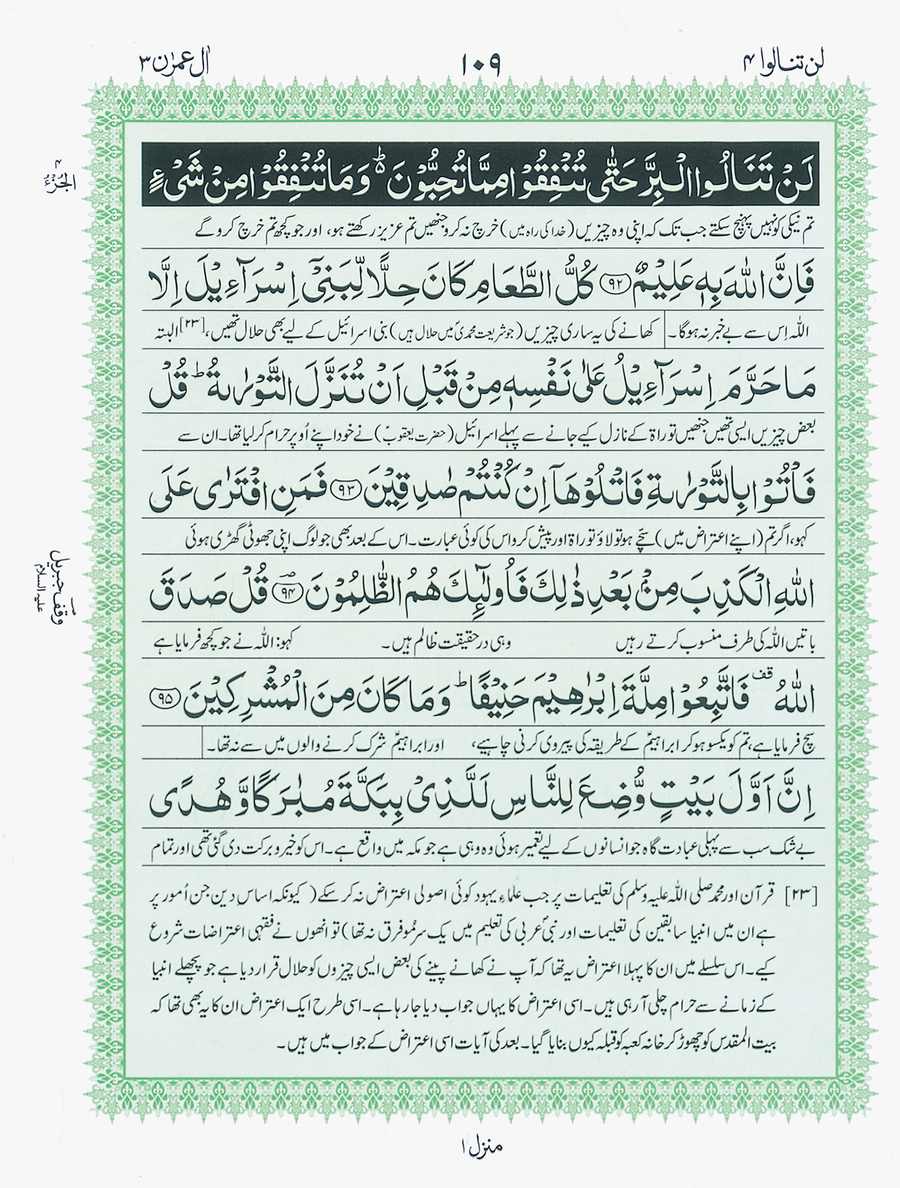 لن تنالوا ۴
۱۰۹
اٰل عمرٰن ۳
۴
الجزء
لَنْ تَنَالُوا الْبِرَّ حَتّٰى تُنْفِقُوْا مِمَّا تُحِبُّوْنَ ؕ۬ وَمَا تُنْفِقُوْا مِنْ شَیْءٍ
تم نیکی کو نہیں پہنچ سکتے جب تک کہ اپنی وہ چیزیں (خدا کی راہ میں) خرچ نہ کرو جنھیں تم عزیز رکھتے ہو، اور جو کچھ تم خرچ کرو گے
فَاِنَّ اللّٰهَ بِهٖ عَلِیْمٌ ﴿۹۲﴾ كُلُّ الطَّعَامِ كَانَ حِلًّا لِّبَنِیْۤ اِسْرَآءِیْلَ اِلَّا
اللہ اس سے بے خبر نہ ہوگا۔ کھانے کی یہ ساری چیزیں (جو شریعت محمدیؐ میں حلال ہیں) بنی اسرائیل کے لیے بھی حلال تھیں، [۲۳] البتہ
مَا حَرَّمَ اِسْرَآءِیْلُ عَلٰى نَفْسِهٖ مِنْ قَبْلِ اَنْ تُنَزَّلَ التَّوْرٰىةُ ؕ قُلْ
بعض چیزیں ایسی تھیں جنھیں توراۃ کے نازل کیے جانے سے پہلے اسرائیل (حضرت یعقوبؑ) نے خود اپنے اُوپر حرام کر لیا تھا۔ ان سے
فَاْتُوْا بِالتَّوْرٰىةِ فَاتْلُوْهَاۤ اِنْ كُنْتُمْ صٰدِقِیْنَ ﴿۹۳﴾ فَمَنِ افْتَرٰى عَلَى
کہو، اگر تم (اپنے اعتراض میں) سچے ہو تو لاؤ توراۃ اور پیش کرو اس کی کوئی عبارت۔ اس کے بعد بھی جو لوگ اپنی جھوٹی گھڑی ہوئی
اللّٰهِ الْكَذِبَ مِنْۢ بَعْدِ ذٰلِكَ فَاُولٰٓىِٕكَ هُمُ الظّٰلِمُوْنَ ﴿۹۴﴾ؔ قُلْ صَدَقَ
وقف جبریل
علیہ السلام
باتیں اللہ کی طرف منسوب کرتے رہیں وہی در حقیقت ظالم ہیں۔ کہو: اللہ نے جو کچھ فرمایا ہے
اللّٰهُ ۫ قف فَاتَّبِعُوْا مِلَّةَ اِبْرٰهِیْمَ حَنِیْفًا ؕ وَمَا كَانَ مِنَ الْمُشْرِكِیْنَ ﴿۹۵﴾
سچ فرمایا ہے، تم کو یکسو ہو کر ابراہیمؑ کے طریقہ کی پیروی کرنی چاہیے، اور ابراہیمؑ شرک کرنے والوں میں سے نہ تھا۔
اِنَّ اَوَّلَ بَیْتٍ وُّضِعَ لِلنَّاسِ لَلَّذِیْ بِبَكَّةَ مُبٰرَكًا وَّهُدًى
بے شک سب سے پہلی عبادت گاہ جو انسانوں کے لیے تعمیر ہوئی وہ وہی ہے جو مکہ میں واقع ہے۔ اس کو خیر و برکت دی گئی تھی اور تمام
[۲۳] قرآن اور محمد صلی اللہ علیہ وسلم کی تعلیمات پر جب علماءِ یہود کوئی اصولی اعتراض نہ کر سکے (کیونکہ اساس دین جن اُمور پر
ہے ان میں انبیا سابقین کی تعلیمات اور نبی عربی کی تعلیم میں یک سرِ مُو فرق نہ تھا) تو انھوں نے فقہی اعتراضات شروع
کیے۔ اس سلسلے میں ان کا پہلا اعتراض یہ تھا کہ آپ نے کھانے پینے کی بعض ایسی چیزوں کو حلال قرار دیا ہے جو پچھلے انبیا
کے زمانے سے حرام چلی آ رہی ہیں۔ اسی اعتراض کا یہاں جواب دیا جا رہا ہے۔ اسی طرح ایک اعتراض ان کا یہ بھی تھا کہ
بیت المقدس کو چھوڑ کر خانہ کعبہ کو قبلہ کیوں بنایا گیا۔ بعد کی آیات اسی اعتراض کے جواب میں ہیں۔
منزل ۱